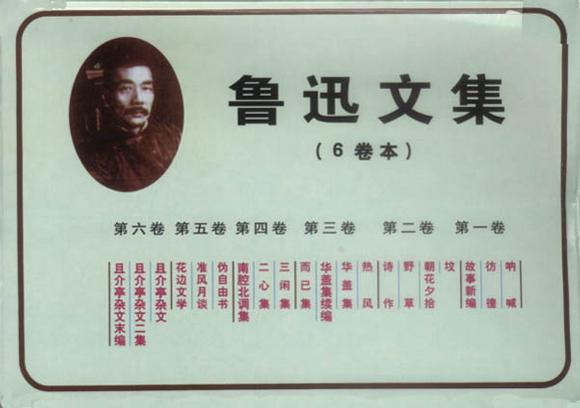 鲁迅文集
(6卷本)
第六卷 第五卷 第四卷 第三卷 第二卷 第一卷
呐喊
彷徨
故事新编
坟
朝花夕拾
野草
诗作
热风
华盖集
华盖集续编
而已集
三闲集
二心集
南腔北调集
伪自由书
准风月谈
花边文学
且介亭杂文
且介亭杂文二集
且介亭杂文末编